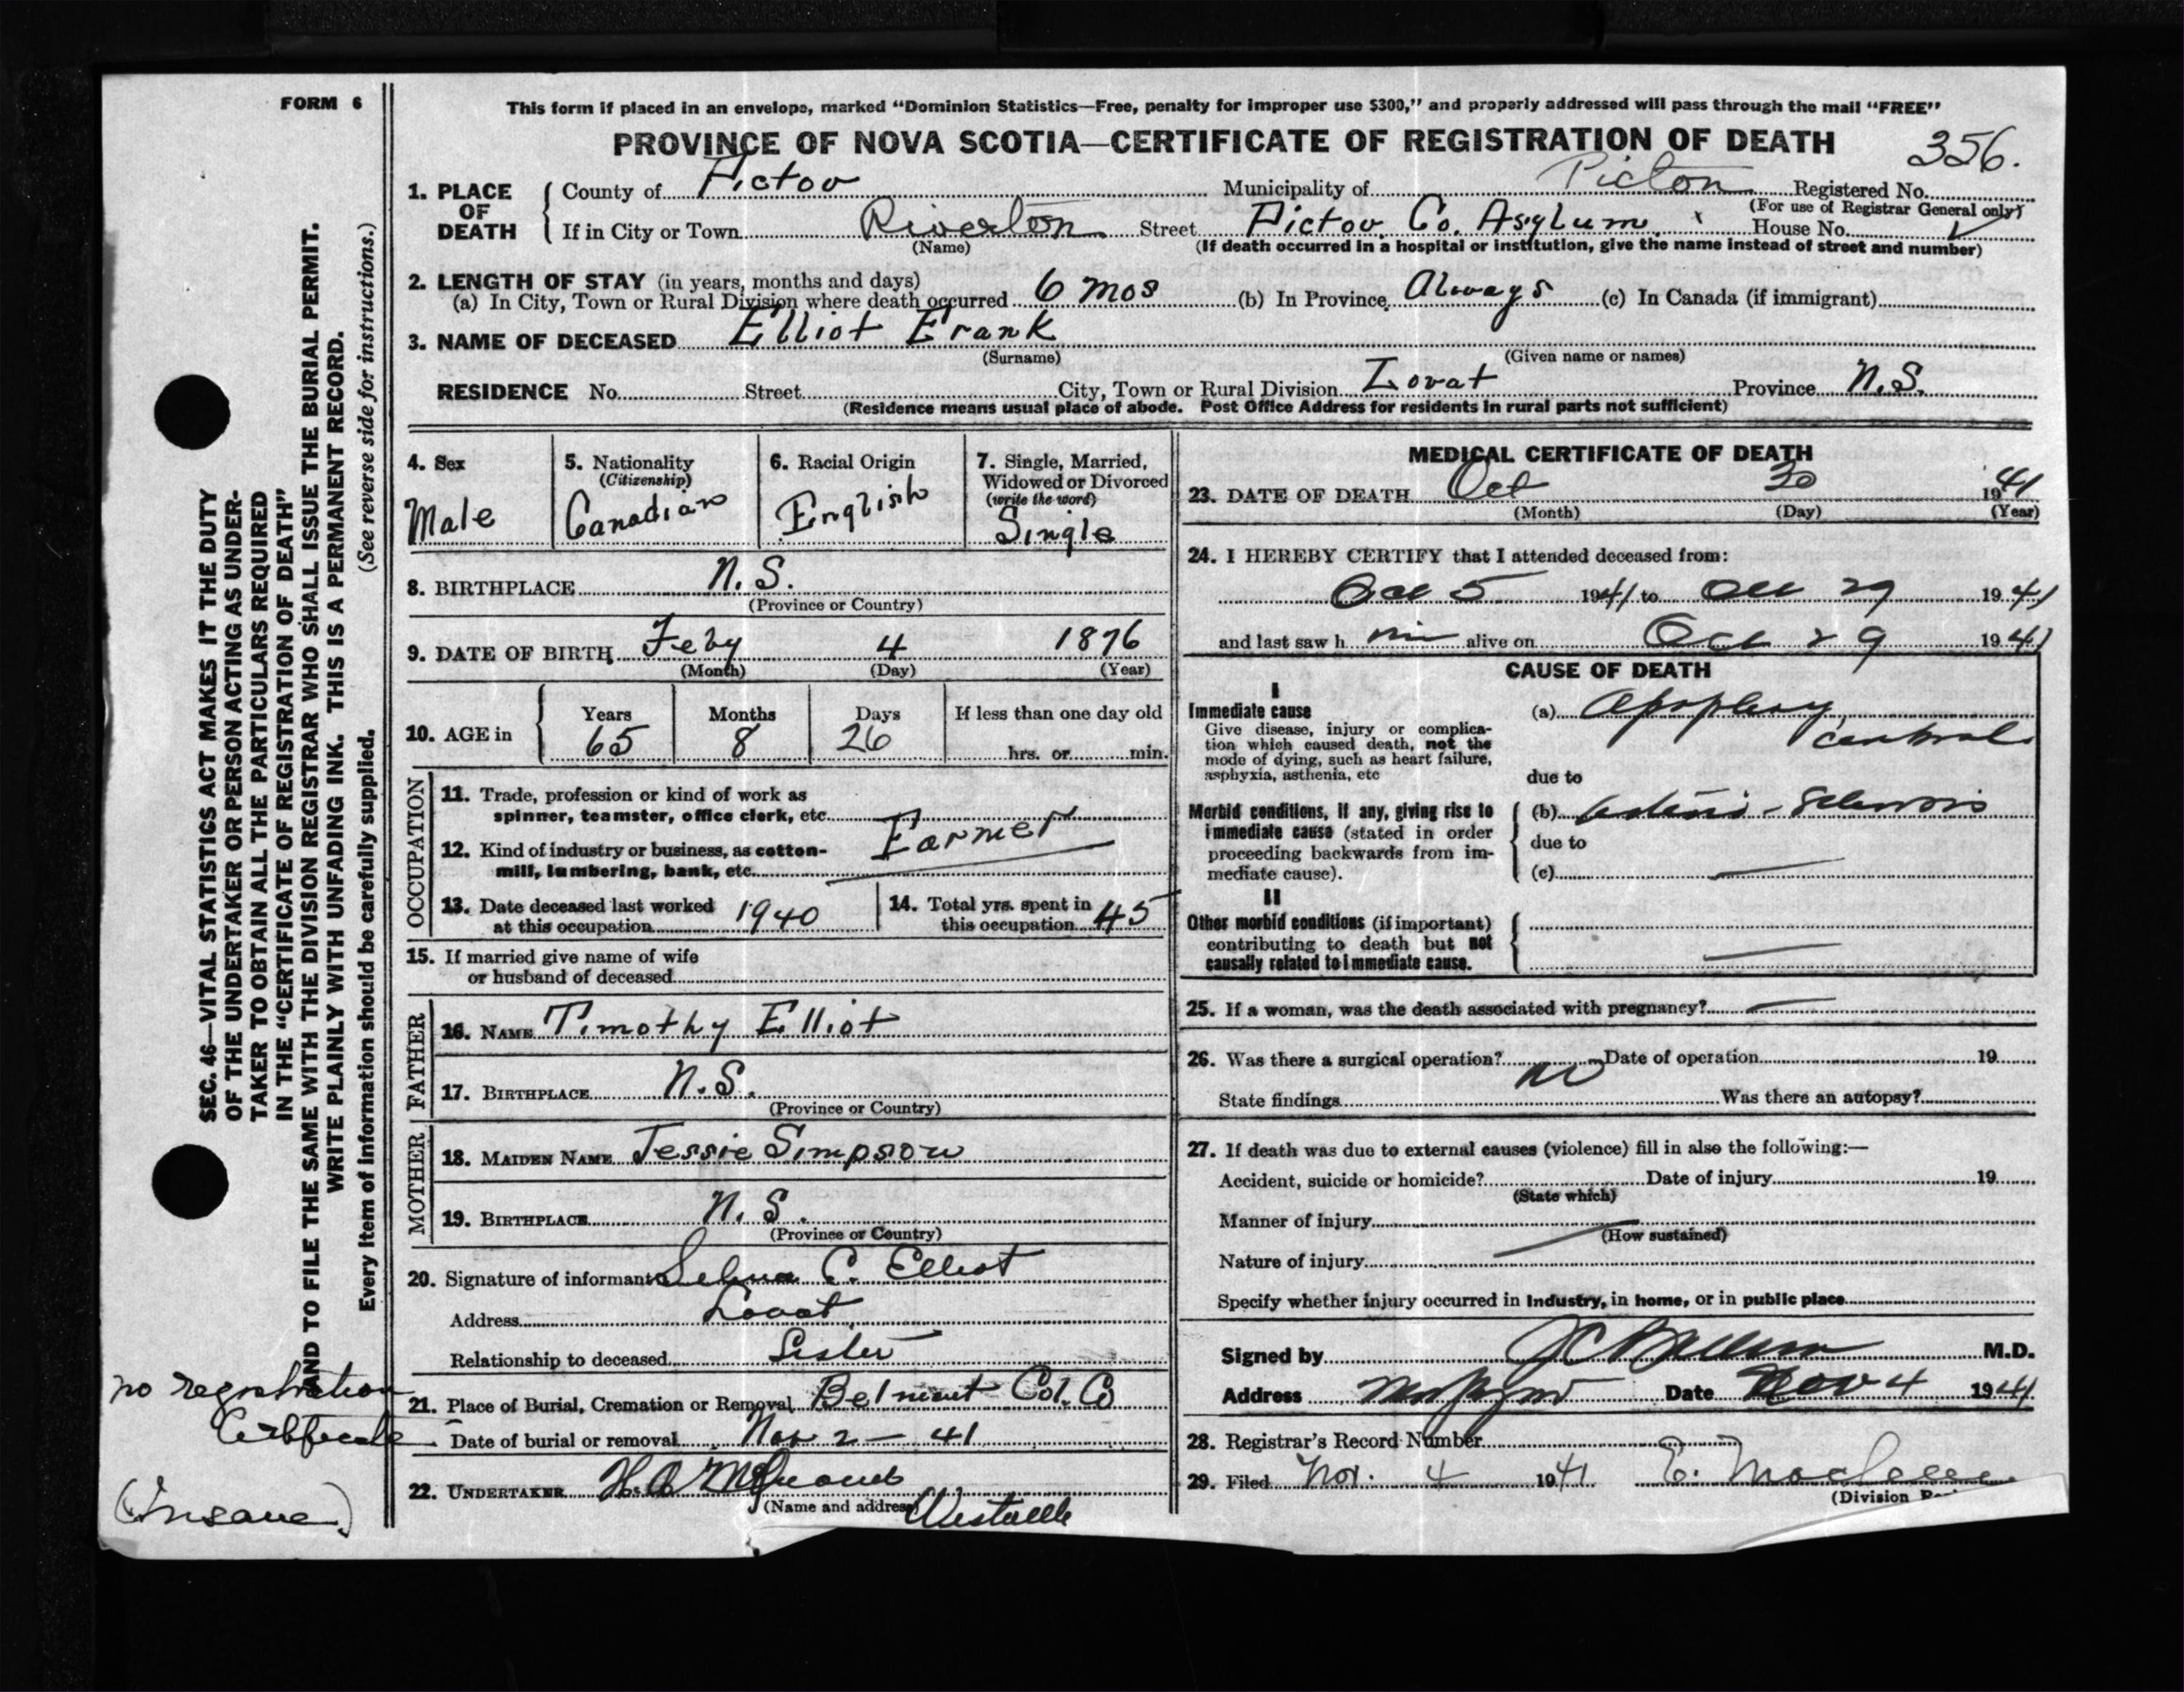 FORM 6
This form if placed in an envelope, marked "Dominion Statistics—Free, penalty for improper use $300," and properly addressed will pass through the mail "FREE"
PROVINCE OF NOVA SCOTIA—CERTIFICATE OF REGISTRATION OF DEATH
356.
1. PLACE OF DEATH
County of Pictou Municipality of Pictou Registered No.
(For use of Registrar General only)
If in City or Town Riverton Street Pictou Co. Asylum. House No.
(Name) (If death occurred in a hospital or institution, give the name instead of street and number)
2. LENGTH OF STAY (in years, months and days)
(a) In City, Town or Rural Division where death occurred 6 mos (b) In Province Always (c) In Canada (if immigrant)
3. NAME OF DECEASED Elliot Frank
(Surname) (Given name or names)
RESIDENCE No. Street City, Town or Rural Division Lovat Province N.S.
(Residence means usual place of abode. Post Office Address for residents in rural parts not sufficient)
4. Sex
Male
5. Nationality
(Citizenship)
Canadian
6. Racial Origin
English
7. Single, Married,
Widowed or Divorced
(write the word)
Single
8. BIRTHPLACE N.S.
(Province or Country)
9. DATE OF BIRTH Feby 4 1876
(Month) (Day) (Year)
10. AGE in
Years Months Days If less than one day old
65 8 26 hrs. or min.
OCCUPATION
11. Trade, profession or kind of work as
spinner, teamster, office clerk, etc.
Farmer
12. Kind of industry or business, as cotton-
mill, lumbering, bank, etc.
13. Date deceased last worked
at this occupation 1940
14. Total yrs. spent in
this occupation 45
15. If married give name of wife
or husband of deceased
FATHER
16. NAME Timothy Elliot
17. BIRTHPLACE N.S.
(Province or Country)
MOTHER
18. MAIDEN NAME Jessie Simpson
19. BIRTHPLACE N.S.
(Province or Country)
20. Signature of informant C. Elliot
Address Lovat
Relationship to deceased Sister
21. Place of Burial, Cremation or Removal Belmont Col. Co
Date of burial or removal Nov 2 — 41
22. UNDERTAKER H.A.
(Name and address) Westville
MEDICAL CERTIFICATE OF DEATH
23. DATE OF DEATH Oct 30 1941
(Month) (Day) (Year)
24. I HEREBY CERTIFY that I attended deceased from:
Oct 5 1941 to Oct 29 1941
and last saw h im alive on Oct 29 1941
CAUSE OF DEATH
I
Immediate cause
Give disease, injury or complica-
tion which caused death, not the
mode of dying, such as heart failure,
asphyxia, asthenia, etc
(a) Apoplexy,
due to
Morbid conditions, if any, giving rise to
immediate cause (stated in order
proceeding backwards from im-
mediate cause).
(b) Arterio-Sclerosis
due to
(c) —
II
Other morbid conditions (if important)
contributing to death but not
causally related to immediate cause.
—
25. If a woman, was the death associated with pregnancy? —
26. Was there a surgical operation? no Date of operation 19
State findings Was there an autopsy?
27. If death was due to external causes (violence) fill in also the following:—
Accident, suicide or homicide? Date of injury 19
(State which)
Manner of injury
(How sustained)
Nature of injury
Specify whether injury occurred in Industry, in home, or in public place
Signed by M.D.
Address Date Nov 4 1941
28. Registrar's Record Number
29. Filed Nov. 4 1941
(Division
SEC. 46—VITAL STATISTICS ACT MAKES IT THE DUTY
OF THE UNDERTAKER OR PERSON ACTING AS UNDER-
TAKER TO OBTAIN ALL THE PARTICULARS REQUIRED
IN THE "CERTIFICATE OF REGISTRATION OF DEATH"
AND TO FILE THE SAME WITH THE DIVISION REGISTRAR WHO SHALL ISSUE THE BURIAL PERMIT.
WRITE PLAINLY WITH UNFADING INK. THIS IS A PERMANENT RECORD.
Every item of information should be carefully supplied. (See reverse side for instructions.)
no registration
Certificate
(Insane)